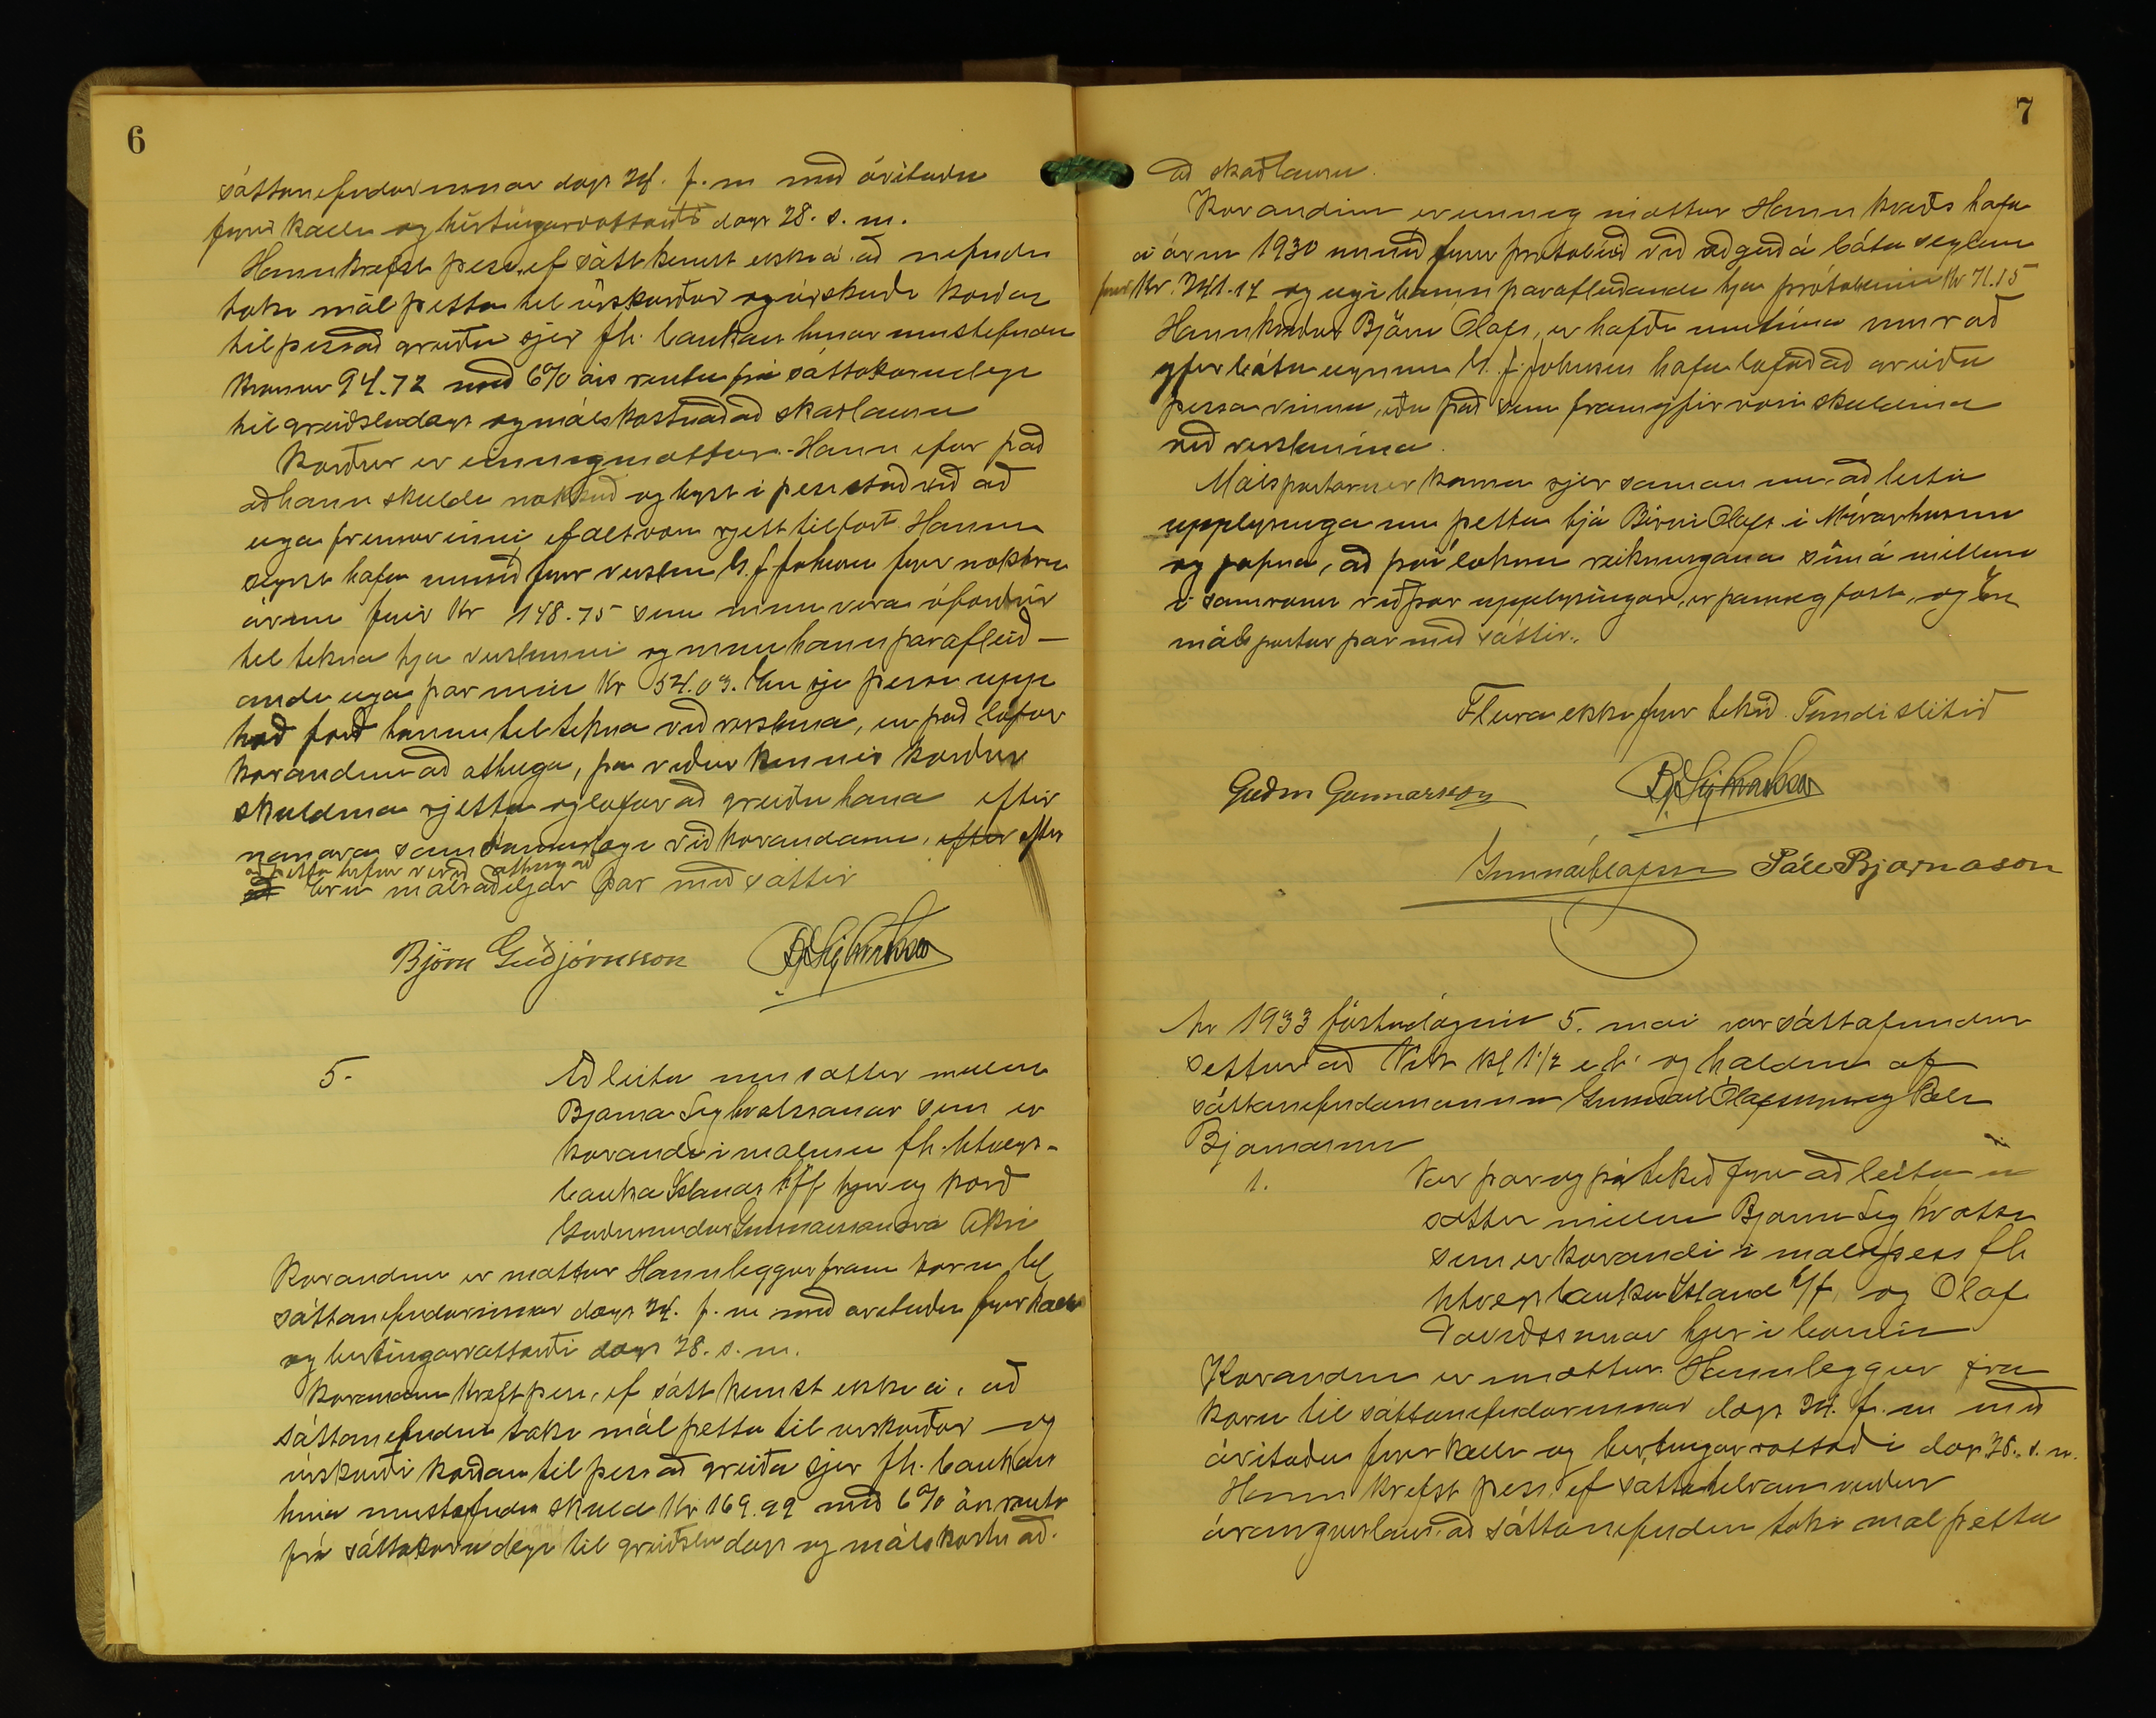 6
sáttanefndarinnar dags 24. f.m með áritaðu
fyrir kalli og birtingarvottorði dags 28. s.m.
Hann krefst þess, ef sátt kemst ekki á að nefndin
taki mál þetta til úrskurðar og úrskurði kærðan
til þess að greiða sjer fh. bankans hinar umstefndu
krónur 94.72 með 6% árs rentu frá sáttakærudegi
til greiðsludags og málskostnað að skaðlausu
Kærður er einnig mættur. Hann efar það
að hann skuldi nokkuð og byst í þess stað við að
eiga fremur inni, ef alt væri rjett tilfært. Hann
segist hafa unnið fyrir verslun G. J. Johnsen fyrir nokkru
árum fyrir Kr 148.75 sem muni vera ófærður
til tekna hja versluninni og muni hann þarafleið-
andi eiga þar inni Kr 54.03. En sje þessi upp
hæð færð honum til tekna við verslunina, en það lofar
kærandinn að athuga, þa viðurkennir kærður
skuldina rjetta og lofar að greiða hana eftir
nanara samkomulagi við kærandann, eftir eftir
að þetta hefur verið athugað
að Eru málsaðiljar þar með sáttir
Björn Guðjónsson
5.
Að leita um sáttir milli
Bjarna Sighvatssonar sem er
kærandi i malinu fh. Utvegs-
banka Islands h/f hjer og kærð
Guðmundar Gunnarssonar a Akri
Kærandinn er mættur Hann leggur fram kæru til
sáttanefndarinnar dags 24. f.m með aritaðu fyrirkalli
og birtingarvottorði dags 28. s.m.
Kærandinn krefst þess, ef sátt kemst ekki á, að
sáttanefndin taki mál þetta til urskurðar og
úrskurði kærðan til þess að greiða sjer fh. bankans
hina umstefndu skuld Kr 169.99 með 6% árs rentu
frá sáttakærudegi til greiðsludags og málskostnað.
7
að skaðlausu.
Kærandinn er einnig mættur Hann kveðs hafa
á árinu 1930 unnið fyrir þrotabúið við aðgerð á báta vegum
fyrir Kr. 241.14 og eigi hann þarafleiðandi hja þrótabúinu Kr 71.15
Hann kveður Björn Olafs, er hafði umsjón
yfir báta eignum G. J. Johnsen hafa lofað að greiða
þessa vinnu, eða það sem framyfir væri skuldina
við verslunina.
Málspartarnir koma sjer saman um að leita
upplysinga um þetta hjá Birni Olafs. i Mýrarhúsum
og jafna, að því loknu reikningana sín á milli
i samræmi við þær upplysingar, er þannig fást, og Eru
málspartar þar með sáttir.
Fleira ekki fyrir tekið. Fundi slitið
Guðm Gunnarsson
Gunnar Olafsson Páll Bjarnason
Ár 1933 föstudaginn 5. mai var sáttafundur
settur að Vik Kl 1 1/2 e.h. og haldinn af
sáttanefndamönnum Gunnari Ólafssyni og Páli
Bjarnasyni
1.
Var þar og þá tekið fyrir að leita um
sættir milli Bjarna Sighvatss
sem er kærandi i mali þess fh
Utvegsbanka Islands h/f, og Olaf
Davíðssonar hjer i bænum
Kærandinn er mættur. Hann leggur fram
kæru til sáttanefndarinnar dags 24. f.m með
áritaðu fyrirkalli og birtingarvottorði dags 28. s.m.
Hann krefst þess, ef sáttatilraun verður
árangurslaus, að sáttanefndin taki mál þetta